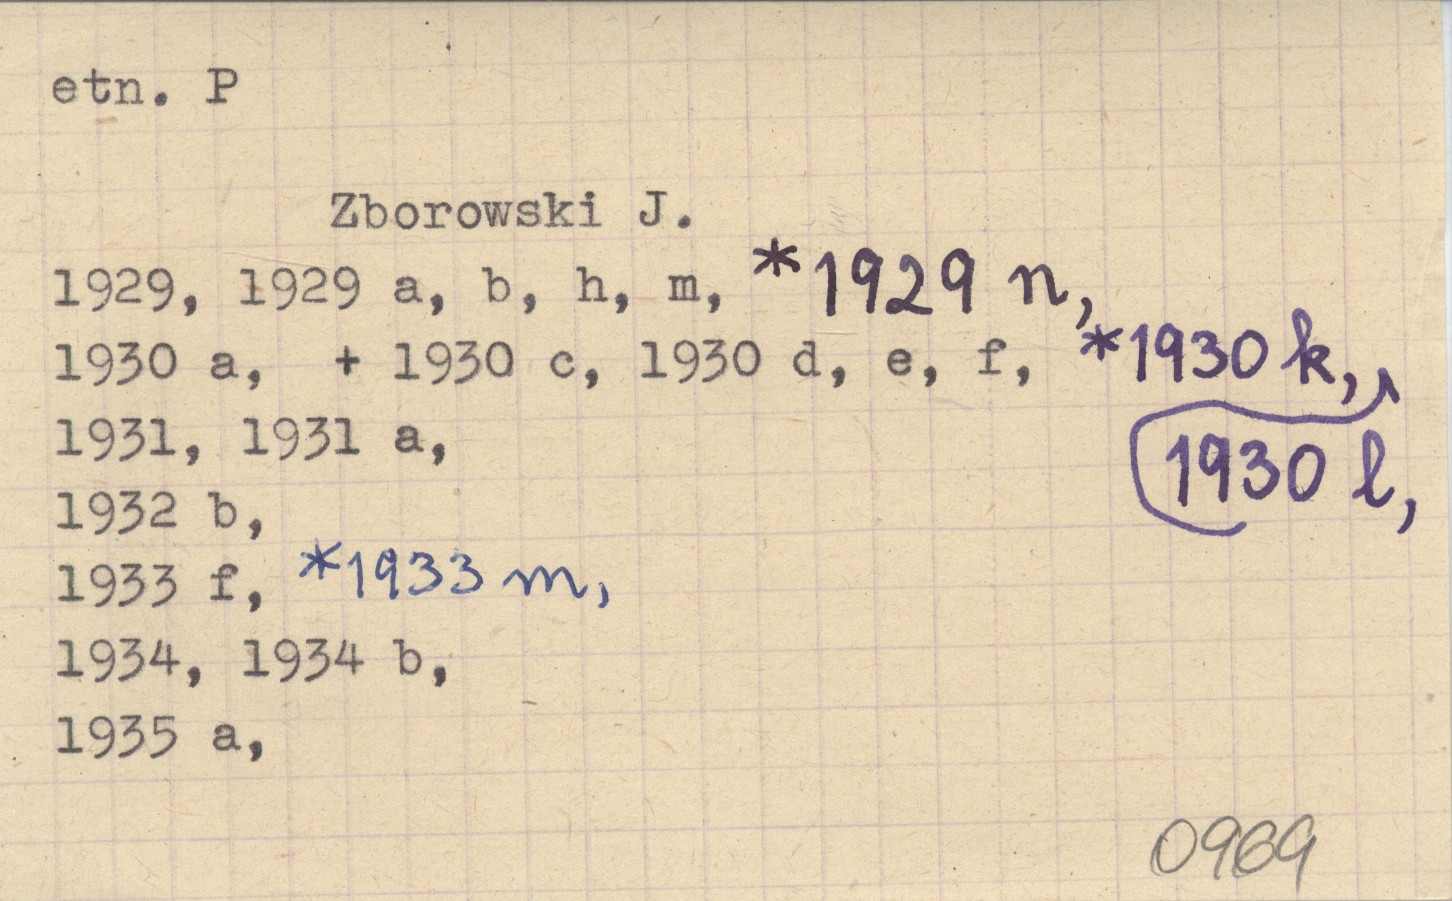 etn. P
Zborowski J.
1929, 1929 a, b, h, m, *1929 n,
1930 a, + 1930 c, 1930 d, e, f, *1930 k,
1930 l,
1931, 1931 a,
1932 b,
1933 f, *1933 m,
1934, 1934 b,
1935 a,
0969